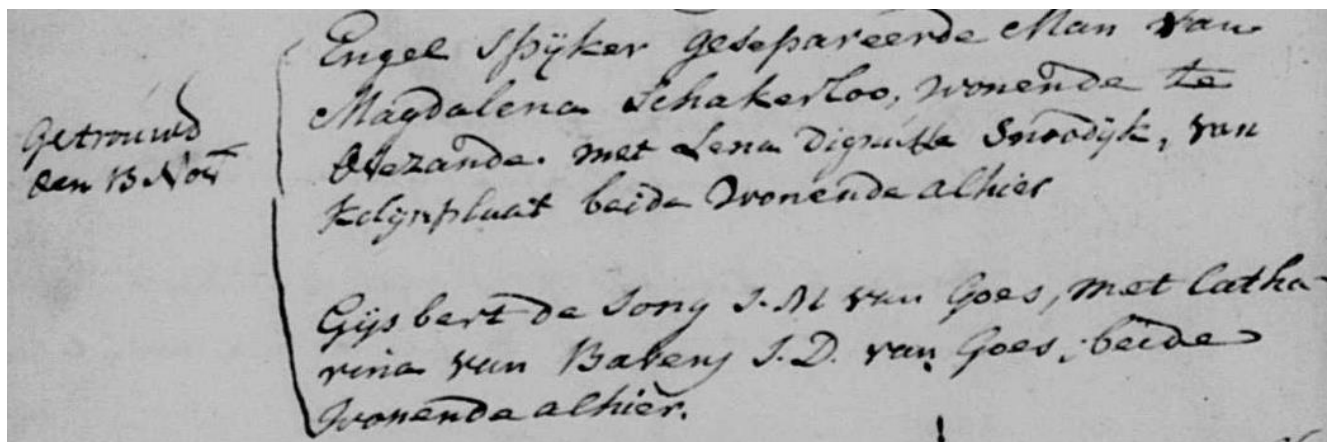 Getrouwd
den 13 Nov
Engel Spijker gesepareerde Man van
Magdalena Schakerloo, wonende te
Ovezande. met Lena Snoodijk, van
Kolynsplaat beide wonende alhier
Gijsbert de Jong J.M van Goes, met Catha-
rina van J.D. van Goes, beide
wonende alhier.